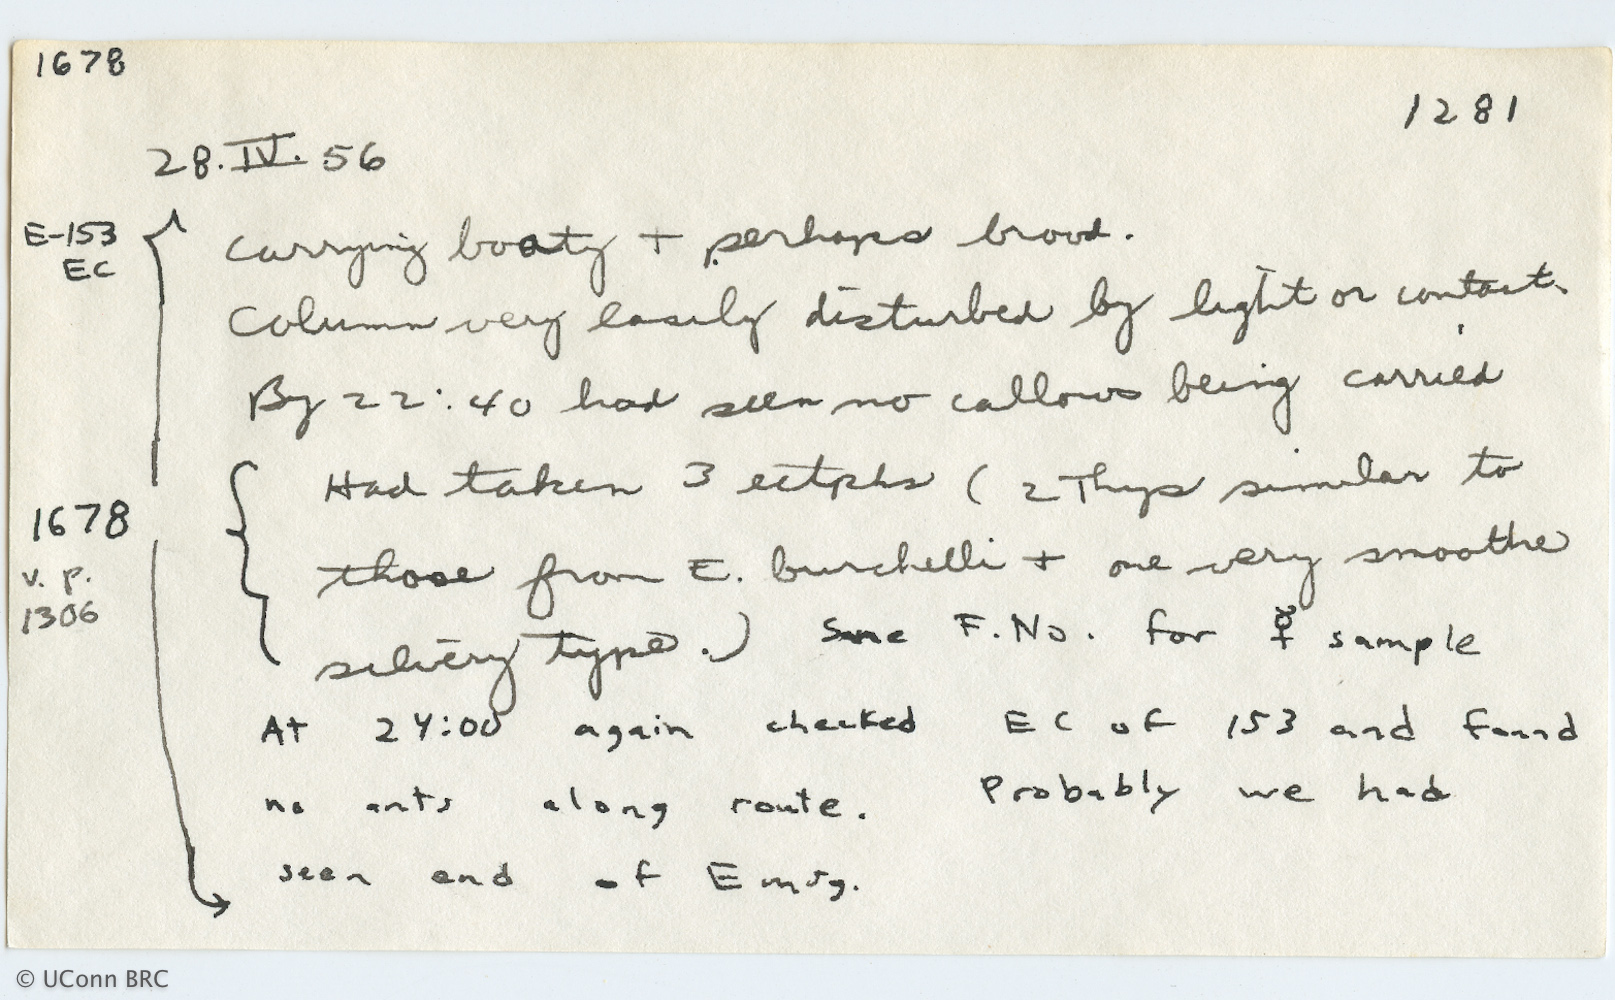 1678
1281
28.IV.56
E-153
EC
Carrying booty + perhaps brood.
Column very easily disturbed by light or contact.
By 22:40 had seen no callows being carried
Had taken 3 ectphs (2 Thys similar to
1678
those from E. burchelli + one very smoothe
v. p.
1306
silvery type.) Same F.No. for ☿ sample
At 24:00 again checked EC of 153 and found
no ants along route. Probably we had
seen end of Emig.
© UConn BRC